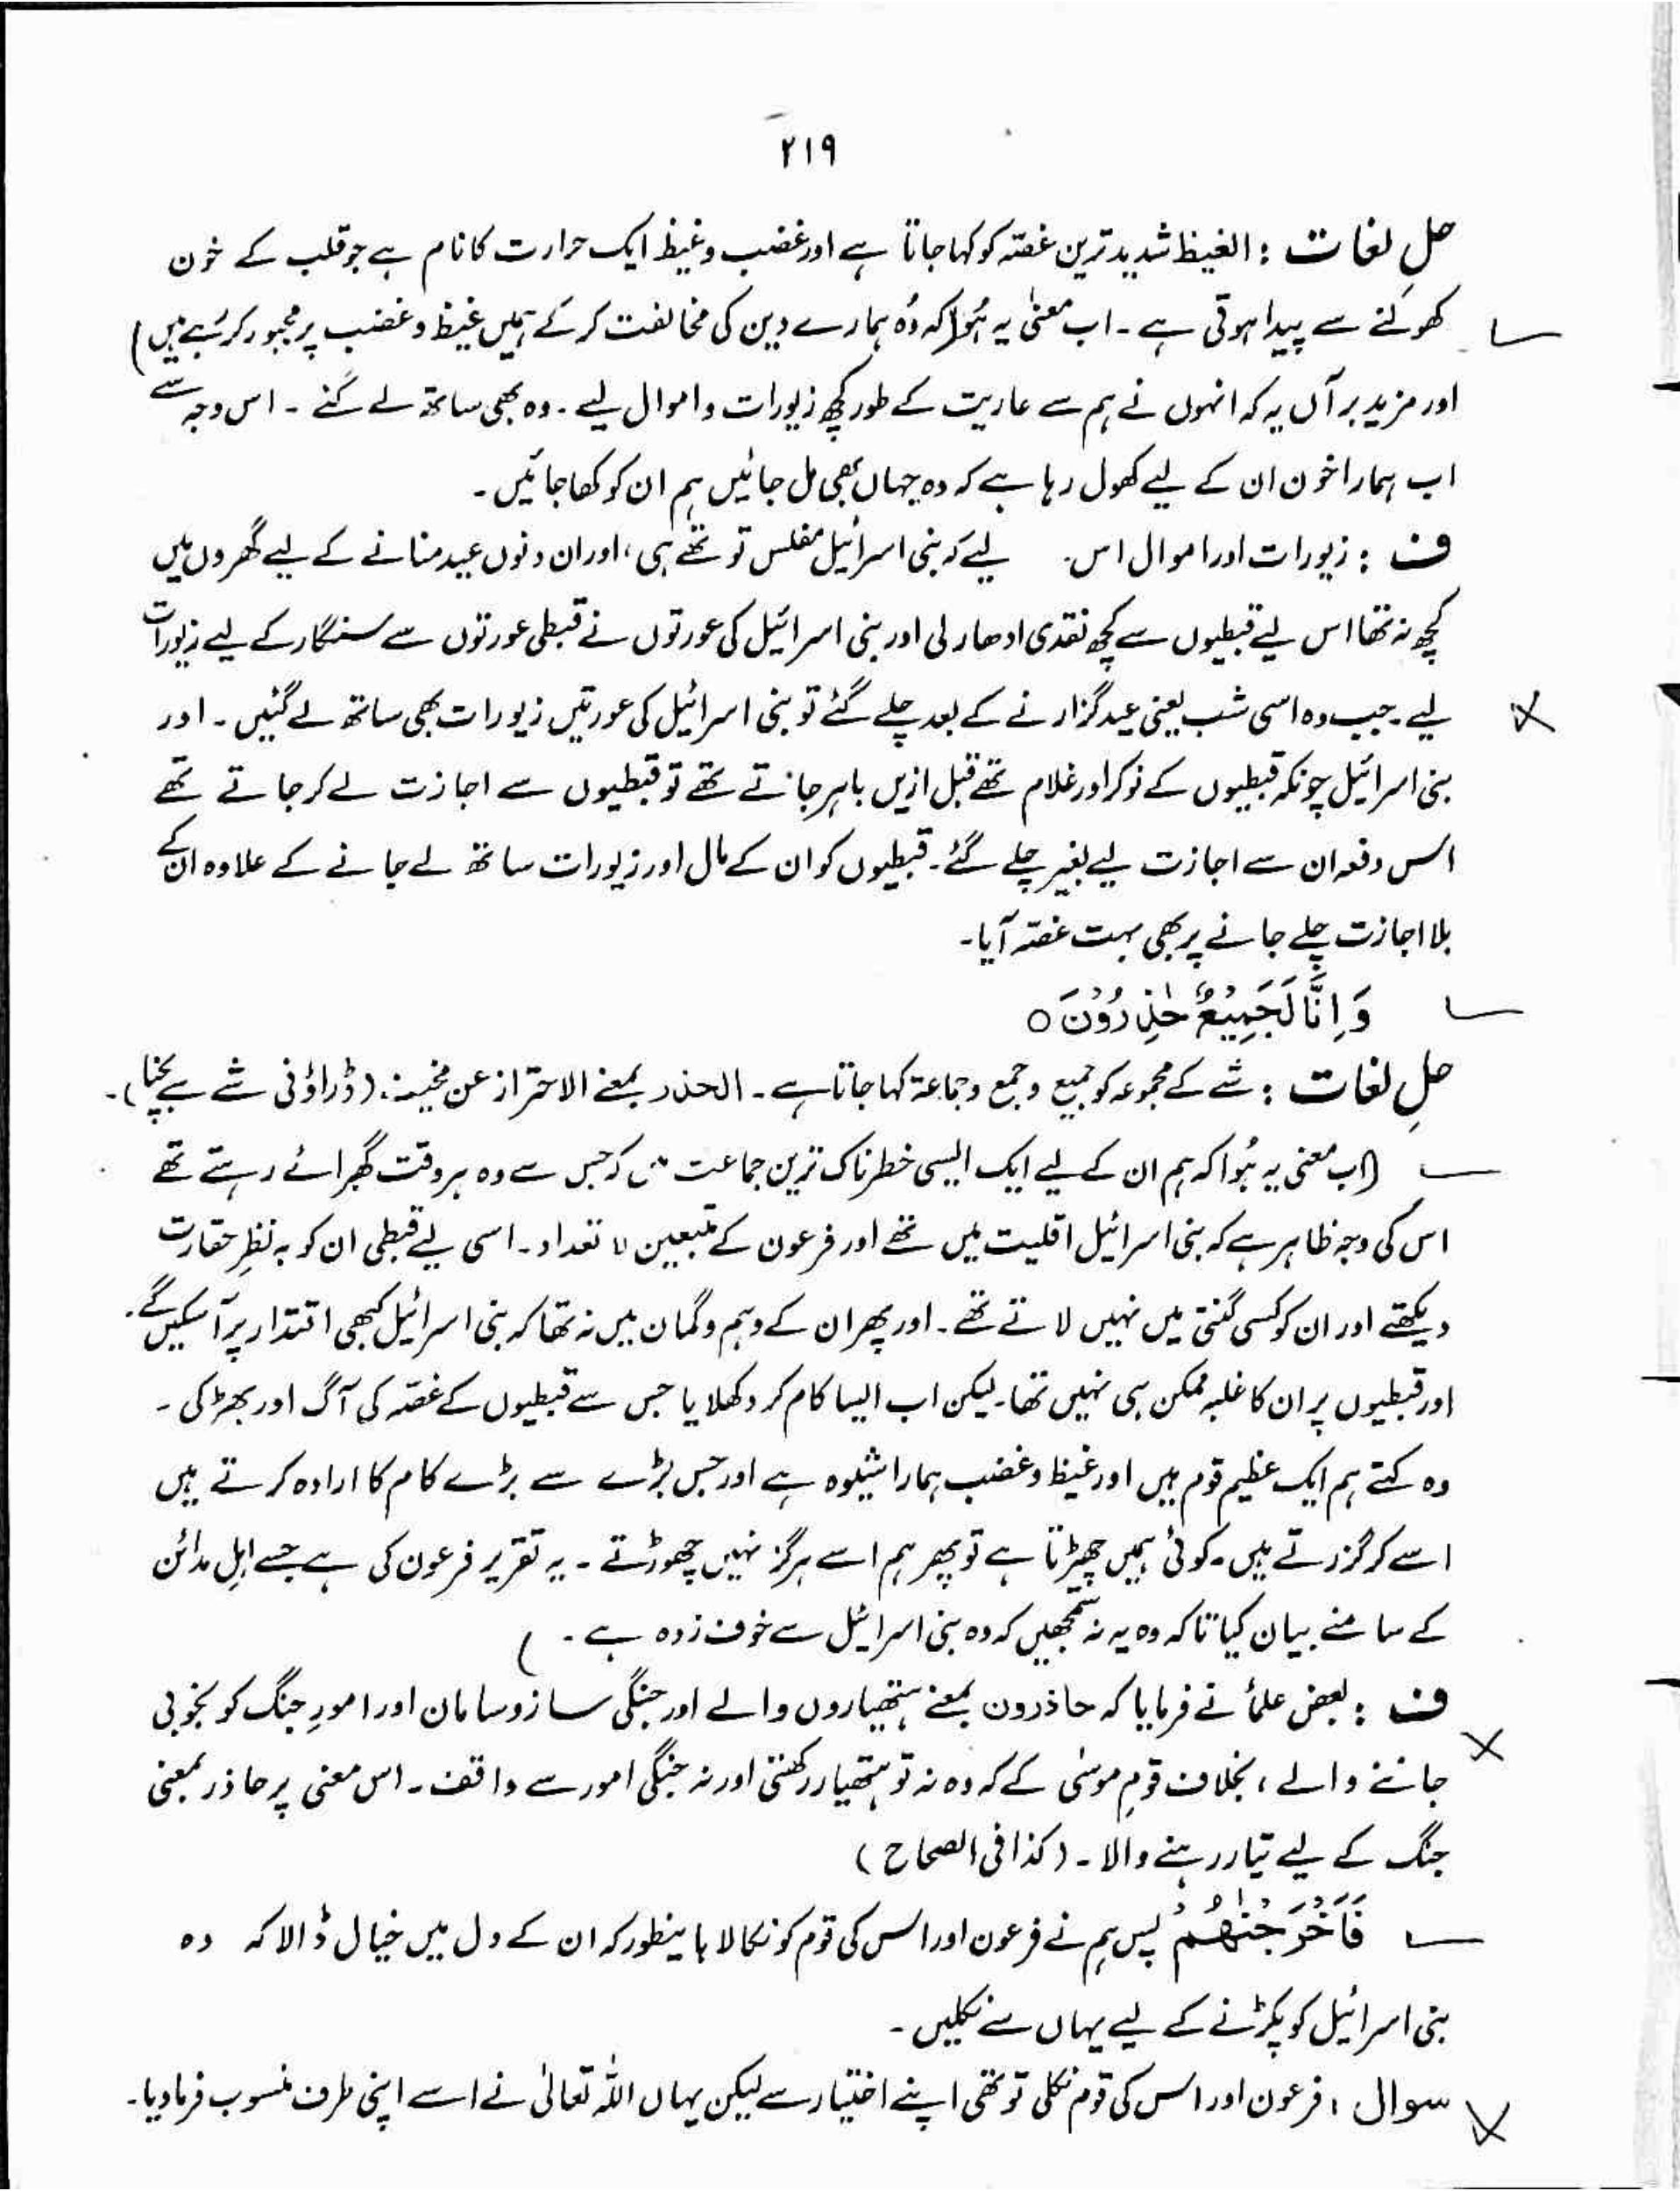 ۲۱۹
حلِ لغات : الغیظ شدید ترین غصّہ کو کہا جاتا ہے اور غضب و غیظ ایک حرارت کا نام ہے جو قلب کے خون
کھولنے سے پیدا ہوتی ہے ۔ اب معنیٰ یہ ہُوا کہ وُہ ہمارے دین کی مخالفت کر کے ہمیں غیظ و غضب پر مجبور کر رہے ہیں)
اور مزید برآں یہ کہ انہوں نے ہم سے عاریت کے طور کچھ زیورات و اموال لیے ۔ وہ بھی ساتھ لے گئے ۔ اس وجہ سے
اب ہمارا خون ان کے لیے کھول رہا ہے کہ وہ جہاں بھی مل جائیں ہم ان کو کھا جائیں ۔
ف : زیورات اور اموال اس لیے کہ بنی اسرائیل مفلس تو تھے ہی ، اور ان دنوں عید منانے کے لیے گھروں میں
کچھ نہ تھا اس لیے قبطیوں سے کچھ نقدی ادھار لی اور بنی اسرائیل کی عورتوں نے قبطی عورتوں سے سنگار کے لیے زیورات
لیے ۔ جب وہ اسی شب یعنی عید گزارنے کے بعد چلے گئے تو بنی اسرائیل کی عورتیں زیورات بھی ساتھ لے گئیں ۔ اور
بنی اسرائیل چونکہ قبطیوں کے نوکر اور غلام تھے قبل ازیں باہر جاتے تھے تو قبطیوں سے اجازت لے کر جاتے تھے
اس دفعہ ان سے اجازت لیے بغیر چلے گئے ۔ قبطیوں کو ان کے مال اور زیورات ساتھ لے جانے کے علاوہ ان کے
بلا اجازت چلے جانے پر بھی بہت غصّہ آیا ۔
وَ اِنَّا لَجَمِیْعٌ حٰذِرُوْنَ ○
حلِ لغات : شے کے مجموعہ کو جمیع و جمع و جماعۃ کہا جاتا ہے ۔ الحذر بمعنے الاحتراز عن مخیف (ڈراؤنی شے سے بچنا) ۔
(اب معنی یہ ہُوا کہ ہم ان کے لیے ایک ایسی خطرناک ترین جماعت کہ جس سے وہ ہر وقت گھبرائے رہتے تھے
اس کی وجہ ظاہر ہے کہ بنی اسرائیل اقلیت میں تھے اور فرعون کے متبعین لا تعداد ۔ اسی لیے قبطی ان کو بہ نظرِ حقارت
دیکھتے اور ان کو کسی گنتی میں نہیں لاتے تھے ۔ اور پھر ان کے وہم و گمان میں نہ تھا کہ بنی اسرائیل کبھی اقتدار پر آسکیں گے ۔
اور قبطیوں پر ان کا غلبہ ممکن ہی نہیں تھا ۔ لیکن اب ایسا کام کر دکھلایا جس سے قبطیوں کے غصّہ کی آگ اور بھڑکی ۔
وہ کہتے ہم ایک عظیم قوم ہیں اور غیظ و غضب ہمارا شیوہ ہے اور جس بڑے سے بڑے کام کا ارادہ کرتے ہیں
اسے کر گزرتے ہیں ۔ کوئی ہمیں چھیڑتا ہے تو پھر ہم اسے ہرگز نہیں چھوڑتے ۔ یہ تقریر فرعون کی ہے جسے اہلِ مدائن
کے سامنے بیان کیا تاکہ وہ یہ نہ سمجھیں کہ وہ بنی اسرائیل سے خوف زدہ ہے ۔ )
ف : بعض علمأ نے فرمایا کہ حاذرون بمعنے ہتھیاروں والے اور جنگی ساز و سامان اور امورِ جنگ کو بخوبی
جاننے والے ، بخلاف قومِ موسٰی کے کہ وہ نہ تو ہتھیار رکھتی اور نہ جنگی امور سے واقف ۔ اس معنی پر حاذر بمعنی
جنگ کے لیے تیار رہنے والا ۔ (کذا فی الصحاح)
فَاَخْرَجْنٰھُمْ پس ہم نے فرعون اور اس کی قوم کو نکالا بایںطور کہ ان کے دل میں خیال ڈالا کہ وہ
بنی اسرائیل کو پکڑنے کے لیے یہاں سے نکلیں ۔
سوال : فرعون اور اس کی قوم نکلی تو تھی اپنے اختیار سے لیکن یہاں اللہ تعالیٰ نے اسے اپنی طرف منسوب فرما دیا ۔